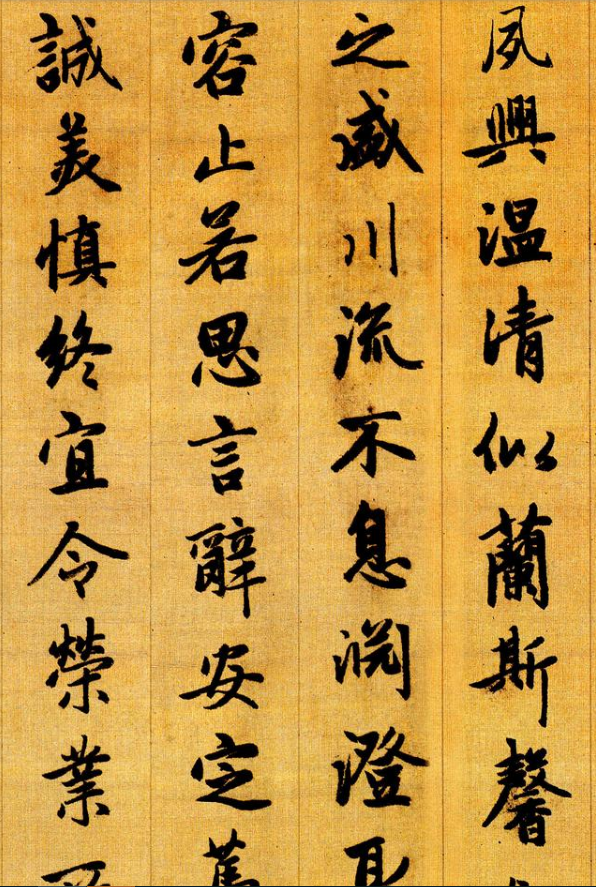 夙興温清似蘭斯馨
之盛川流不息淵澄取
容止若思言辭安定篤
誠美慎終宜令榮業